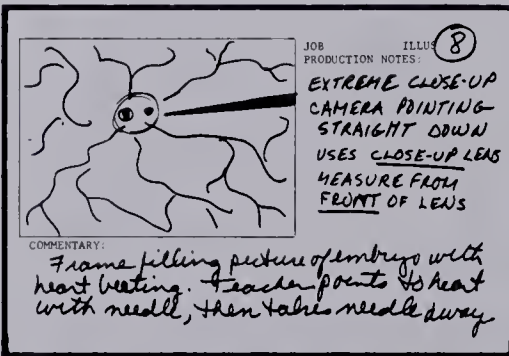 JOB ILLUS 8
PRODUCTION NOTES:
EXTREME CLOSE-UP
CAMERA POINTING
STRAIGHT DOWN
USES CLOSE-UP LENS
MEASURE FROM
FRONT OF LENS
COMMENTARY:
Frame filling picture of embryo with
heart beating. Teacher points to heart
with needle, then takes needle away